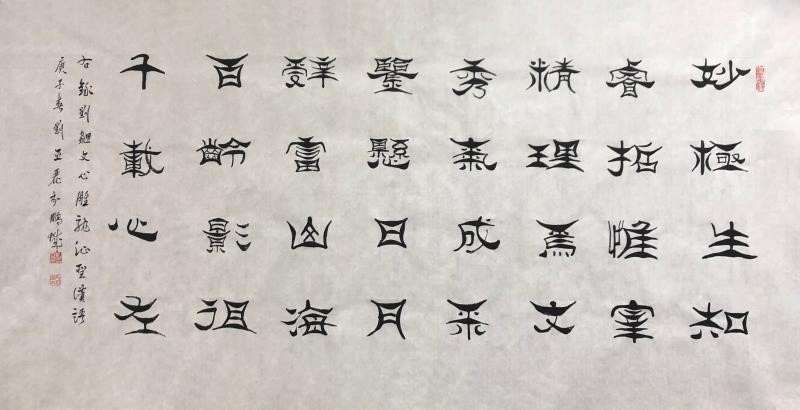 妙極生知
睿哲惟宰
精理為文
秀氣成采
鑒懸日月
辭富山海
百齡影徂
千載心在
右錄劉勰文心雕龍征聖讚語
庚子春劉亚鵬城